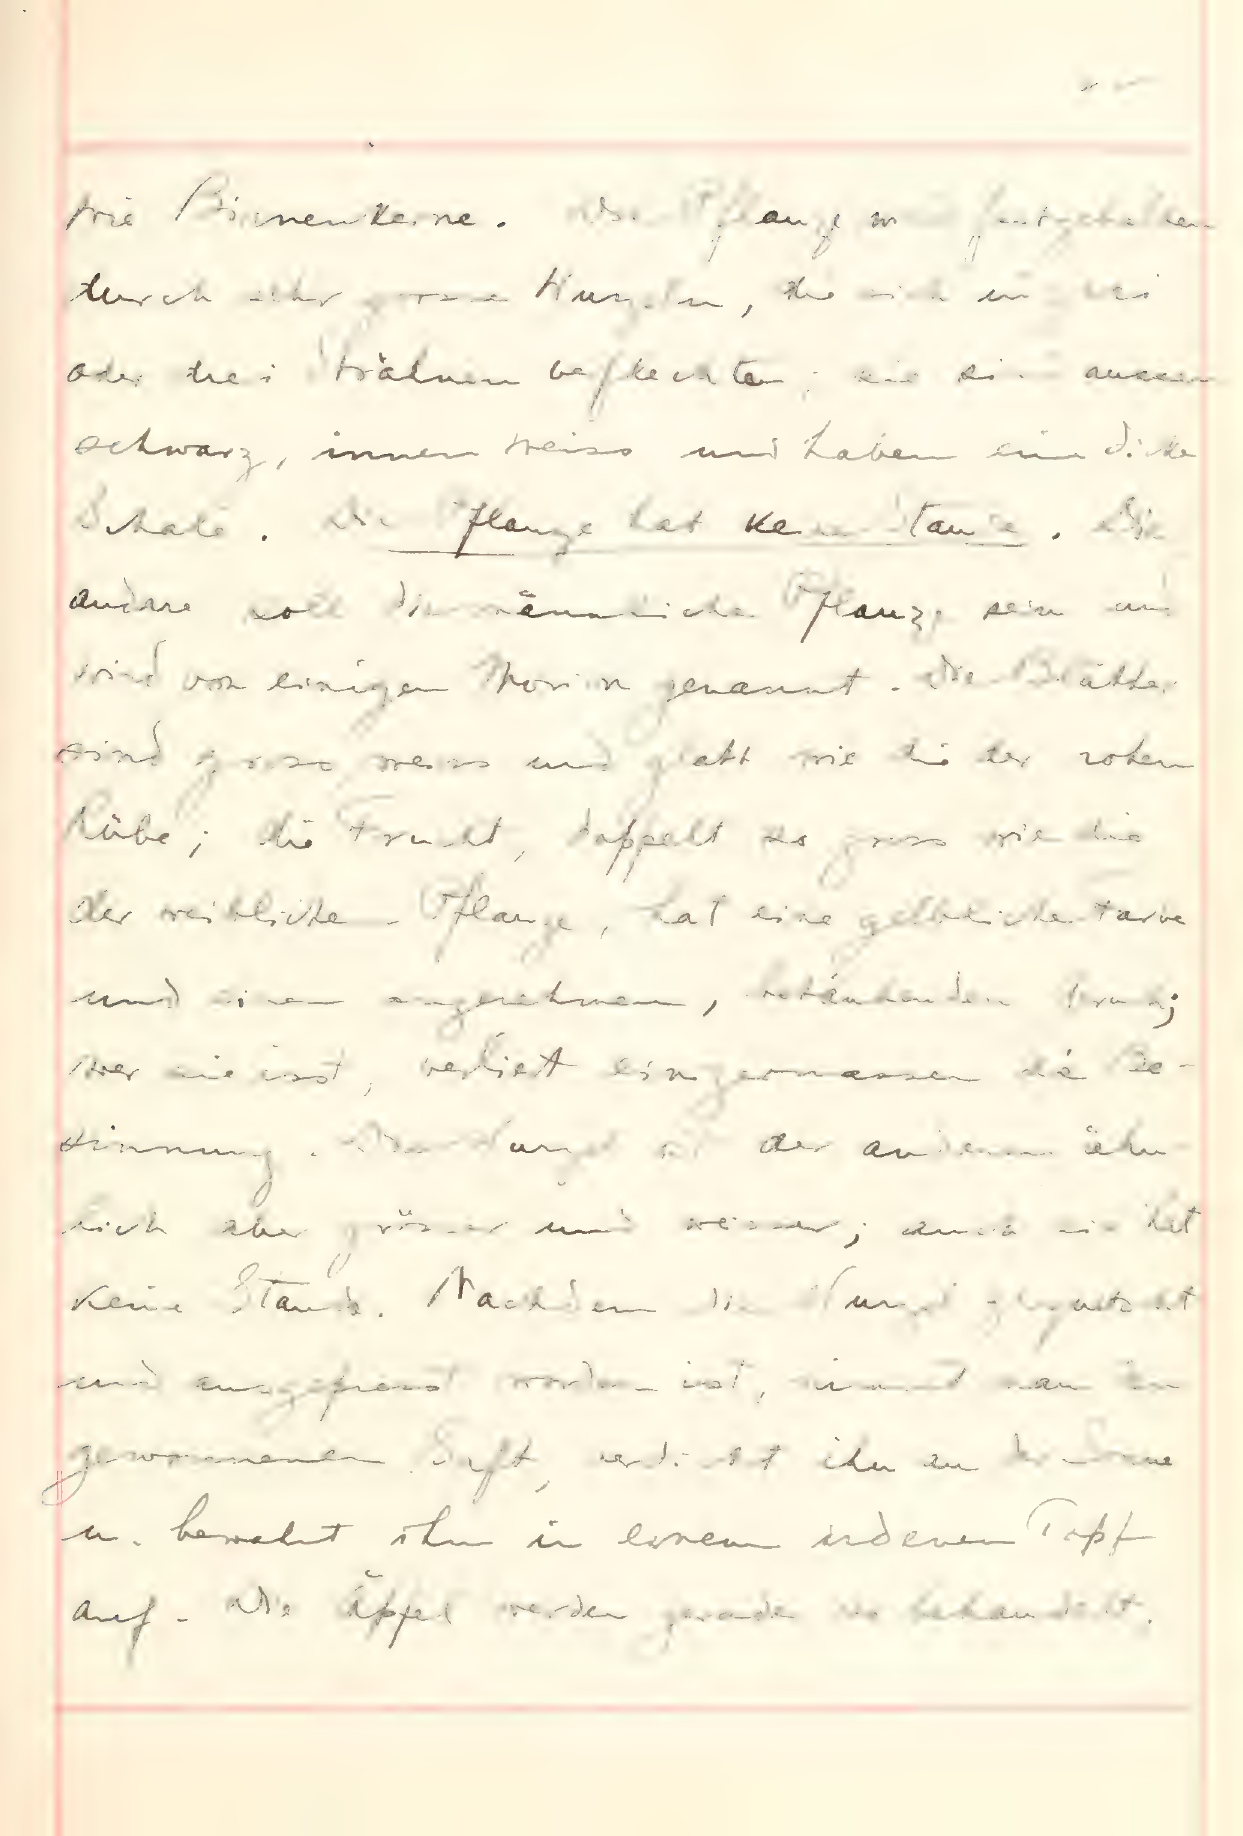 wie Birnenkerne. Die Pflanze wird festgehalten
durch sehr grosse Wurzeln, die sich in zwei
oder drei Strähnen verflechten; sie sind aussen
schwarz, innen weiss und haben eine dicke
Schale. Die Pflanze hat keine Staude. Die
andere soll die männliche Pflanze sein und
wird von einigen Morion genannt. Die Blätter
sind gross weiss und glatt wie die der roten
Rübe; die Frucht, doppelt so gross wie die
der weiblichen Pflanze, hat eine gelbliche Farbe
und einen angenehmen, betäubenden Geruch;
wer sie isst, verliert einigermassen die Be-
sinnung. Die Wurzel ist der anderen ähn-
lich aber grösser und weisser; auch sie hat
keine Staude. Nachdem die Wurzel gequetscht
und ausgepresst worden ist, nimmt man den
gewonnenen Saft, verdickt ihn an der Sonne
u. bewahrt ihn in einem irdenen Topf
auf. Die Äpfel werden gerade so behandelt.